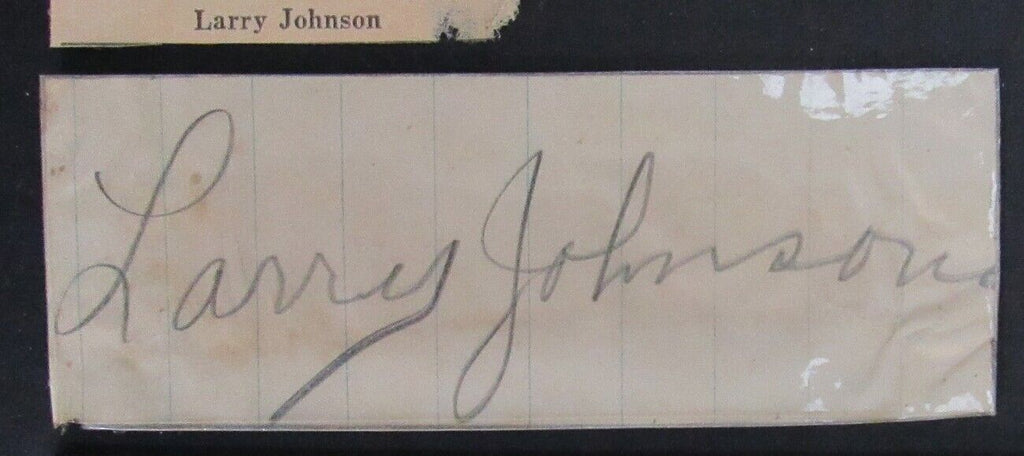 Larry Johnson
Larry Johnson